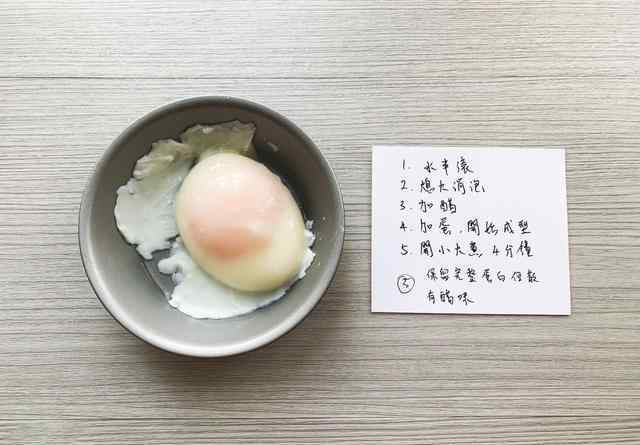 1. 水半滾
2. 熄火消泡
3. 加醋
4. 加蛋，開始成型
5. 開小火煮 4分鐘
⑤ 保留完整蛋白但散
有醋味